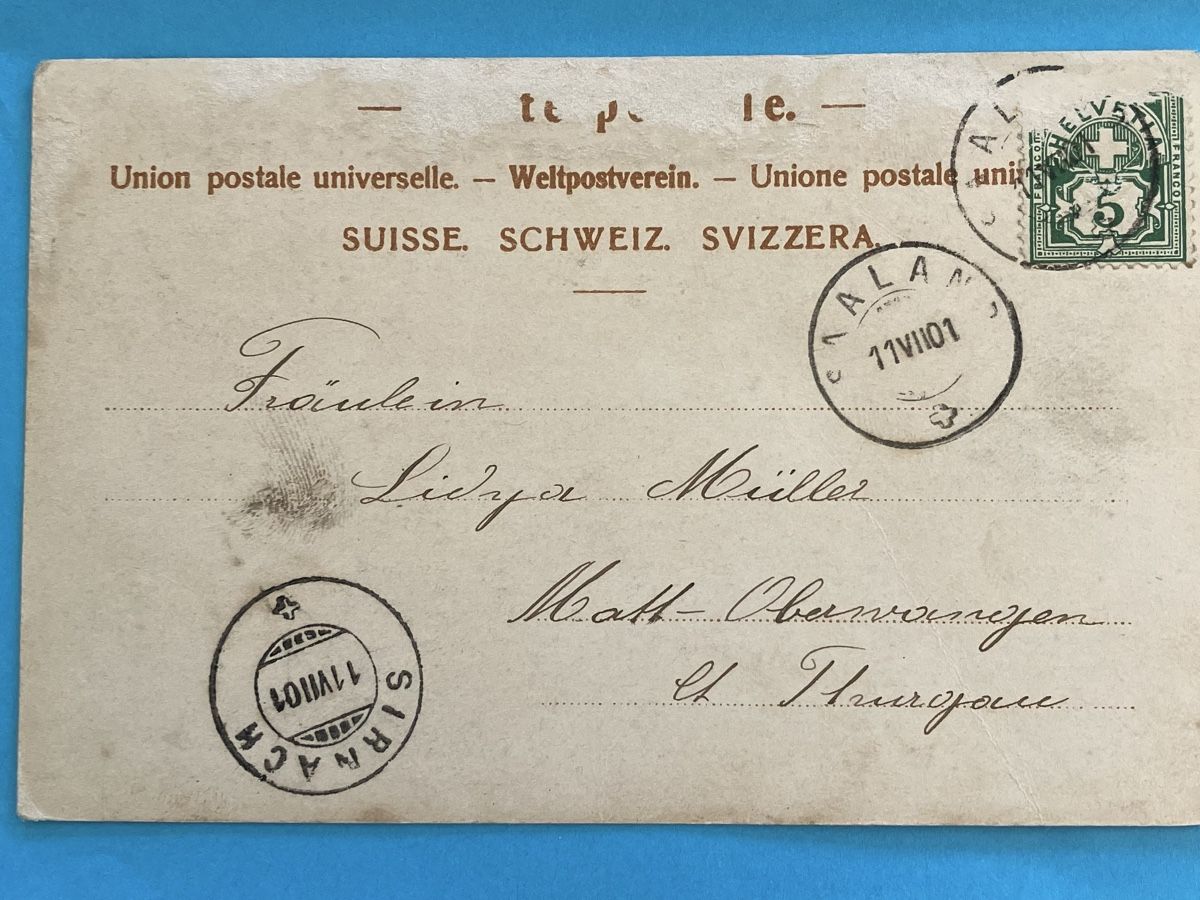 Union postale universelle. — Weltpostverein. — Unione postale
SUISSE. SCHWEIZ. SVIZZERA.
HELVETIA
FRANCO
5
SAALAND
11 VII 01
Fräulein
Lidya Müller
Matt-Oberwangen
Ct Thurgau
SIRNACH
11 VII 01